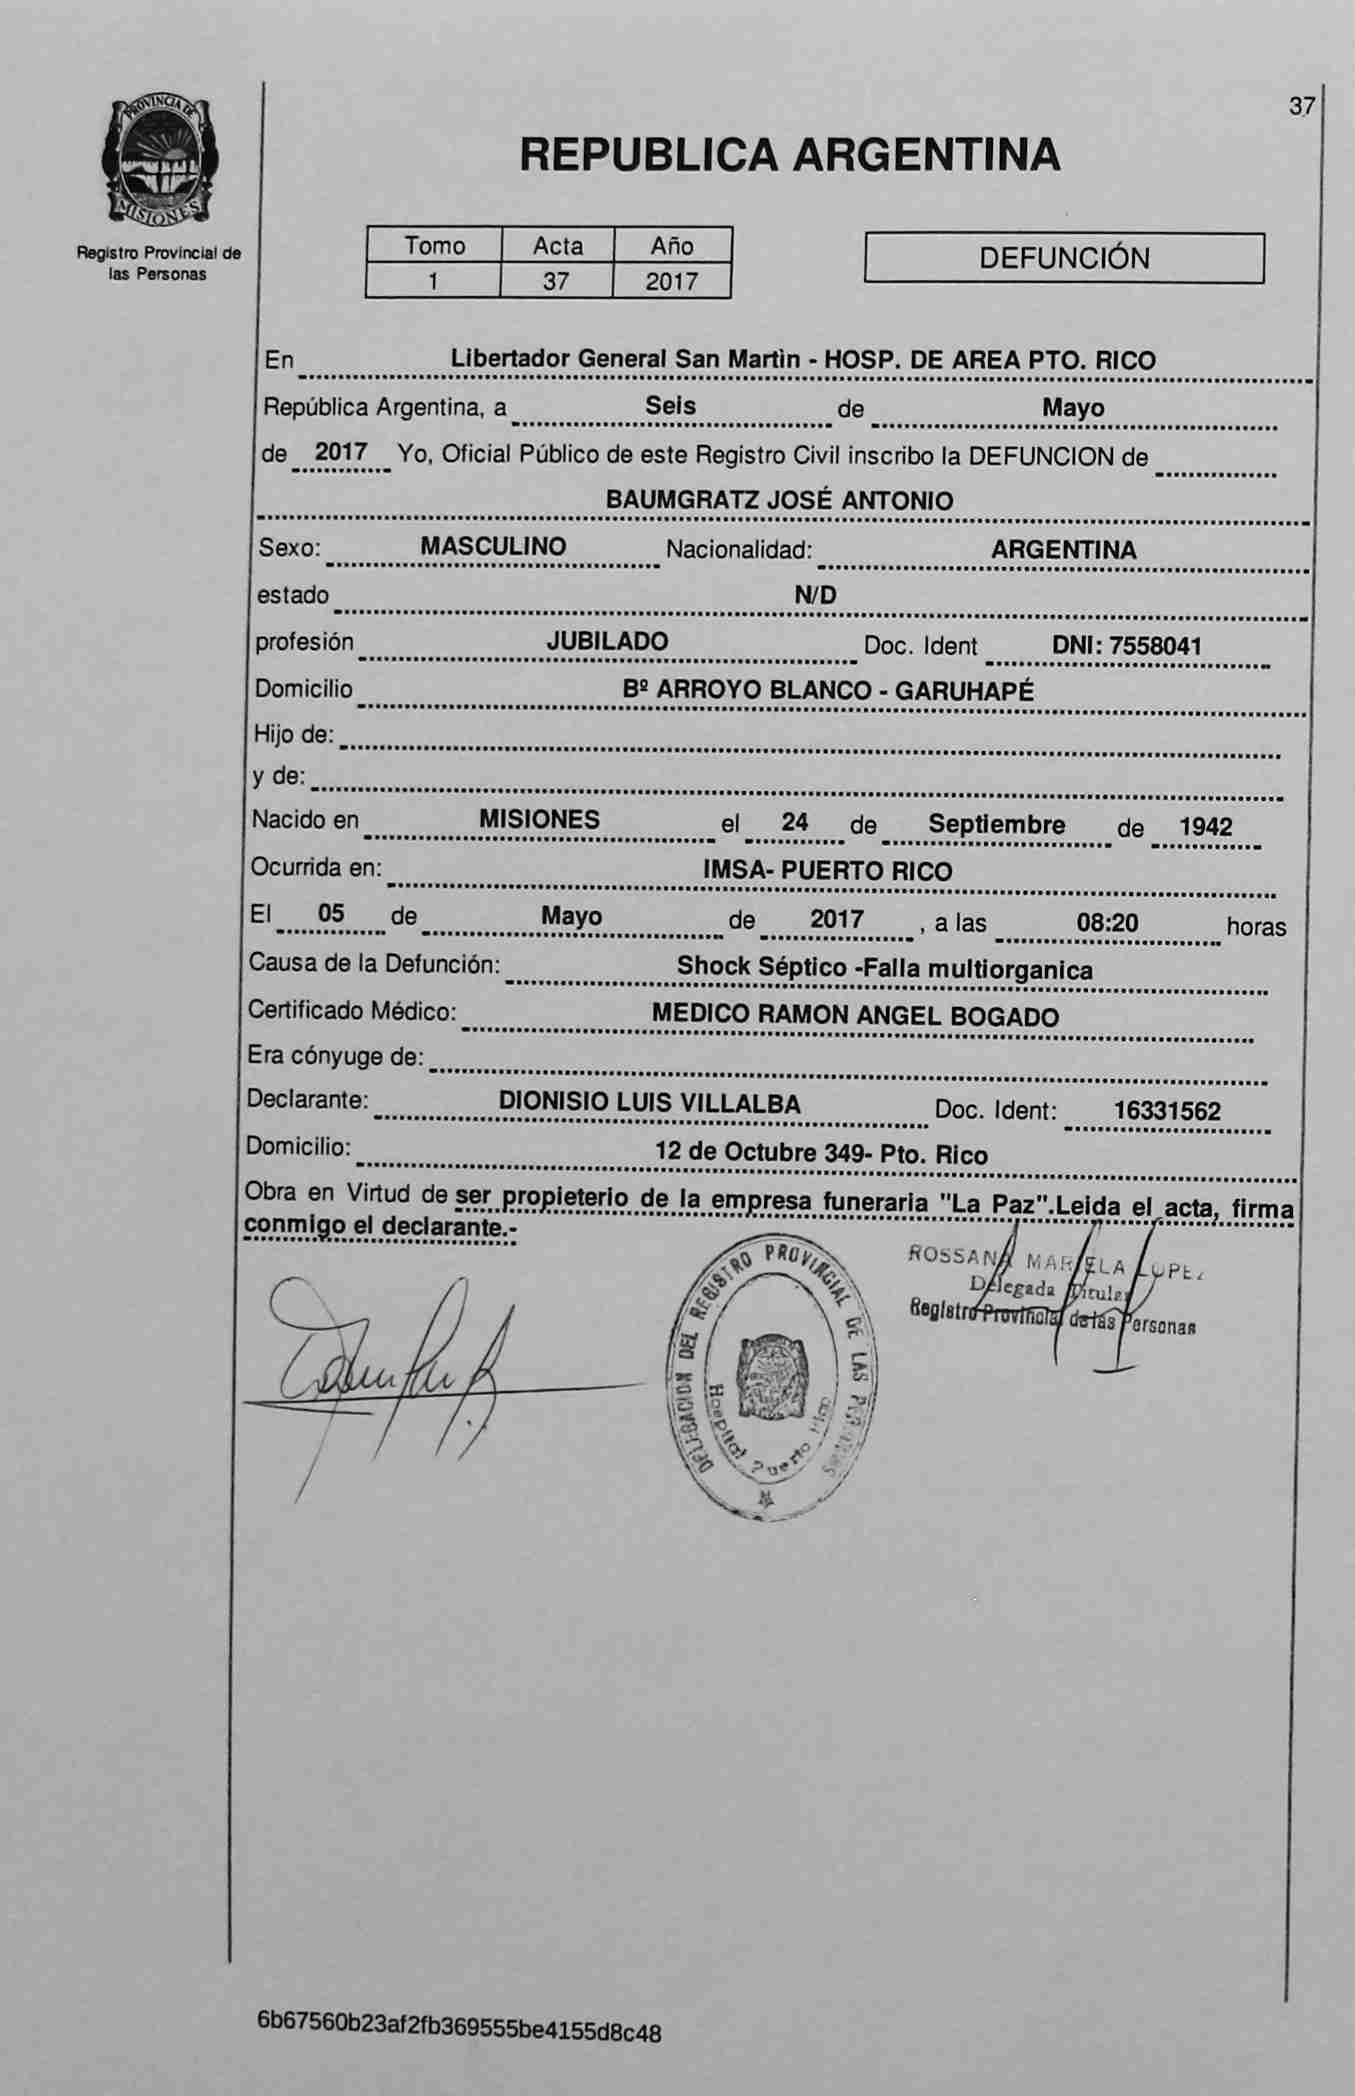 37
PROVINCIA DE
MISIONES
Registro Provincial de
las Personas
REPUBLICA ARGENTINA
Tomo Acta Año
1 37 2017
DEFUNCIÓN
En Libertador General San Martìn - HOSP. DE AREA PTO. RICO
República Argentina, a Seis de Mayo
de 2017 Yo, Oficial Público de este Registro Civil inscribo la DEFUNCION de
BAUMGRATZ JOSÉ ANTONIO
Sexo: MASCULINO Nacionalidad: ARGENTINA
estado N/D
profesión JUBILADO Doc. Ident DNI: 7558041
Domicilio Bº ARROYO BLANCO - GARUHAPÉ
Hijo de:
y de:
Nacido en MISIONES el 24 de Septiembre de 1942
Ocurrida en: IMSA- PUERTO RICO
El 05 de Mayo de 2017 , a las 08:20 horas
Causa de la Defunción: Shock Séptico -Falla multiorganica
Certificado Médico: MEDICO RAMON ANGEL BOGADO
Era cónyuge de:
Declarante: DIONISIO LUIS VILLALBA Doc. Ident: 16331562
Domicilio: 12 de Octubre 349- Pto. Rico
Obra en Virtud de ser propieterio de la empresa funeraria "La Paz".Leida el acta, firma
conmigo el declarante.-
DELEGACION DEL REGISTRO PROVINCIAL DE LAS PERSONAS
Hospital Puerto Rico
ROSSANA MARIELA LOPEZ
Delegada Titular
Registro Provincial de las Personas
6b67560b23af2fb369555be4155d8c48